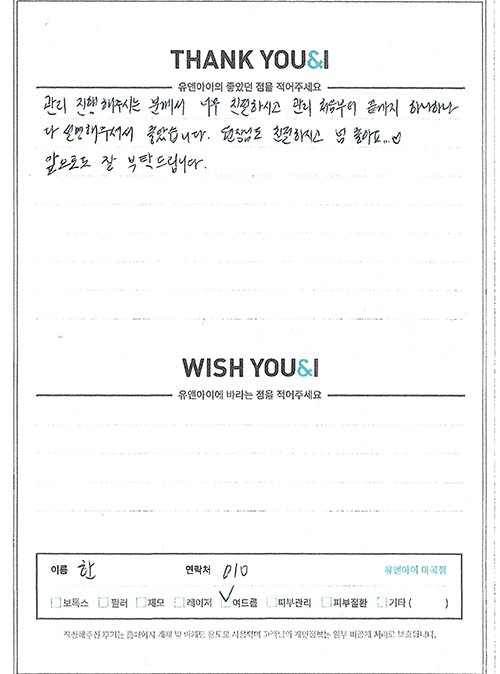 THANK YOU&I
유앤아이의 좋았던 점을 적어주세요
관리 진행해주시는 분께서 너무 친절하시고 관리 처음부터 끝까지 하나하나
다 설명해주셔서 좋았습니다. 원장님도 친절하시고 넘 좋아요..♡
앞으로도 잘 부탁드립니다.
WISH YOU&I
유앤아이에 바라는 점을 적어주세요
이름 한 연락처 010 유앤아이 마곡점
보톡스 필러 제모 레이저 여드름 피부관리 피부질환 기타 ( )
작성해주신 후기는 홈페이지 게재 및 마케팅 용도로 사용되며 고객님의 개인정보는 일부 비공개 처리로 보호됩니다.